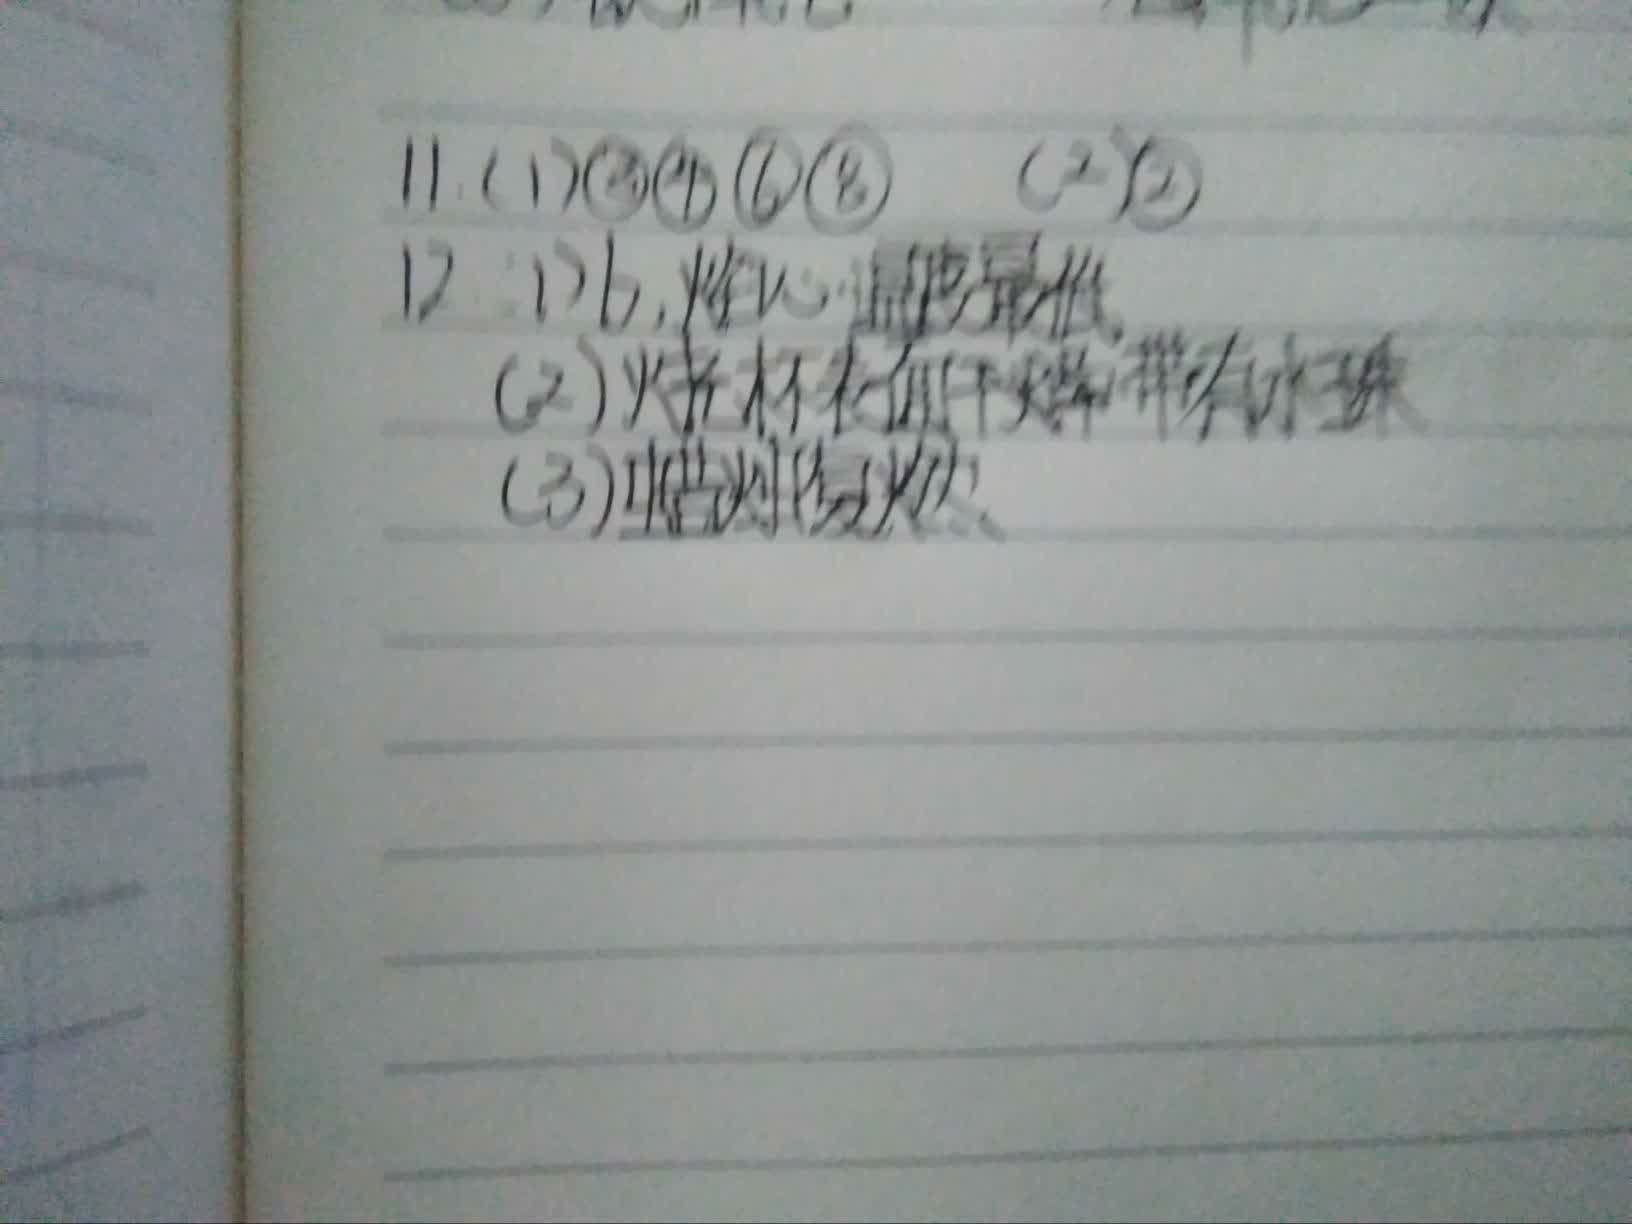 11.(1)③④⑥⑧ (2)②
12.(1)b,焰心温度最低
(2)烧杯表面干燥,带有水珠
(3)蜡烛复燃